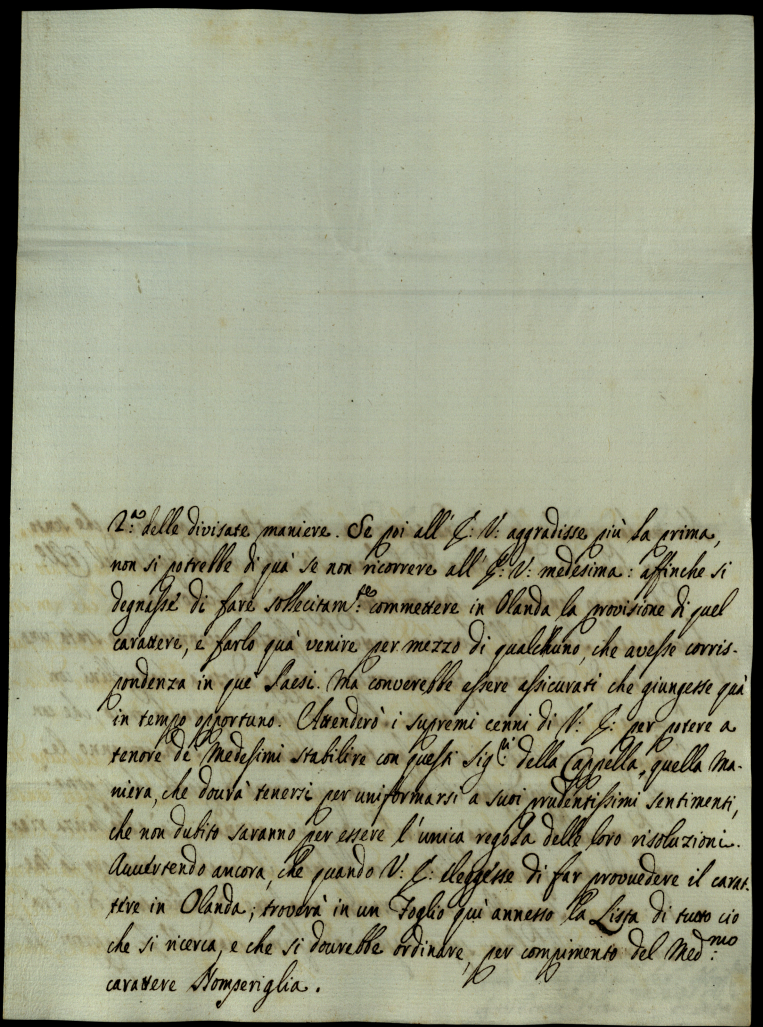 2.ª delle divisate maniere. Se poi all' E: V: aggradisse più la prima,
non si potrebbe di quà se non ricorrere all' E: V: medesima: affinche si
degnasse di fare sollecitam.te commettere in Olanda la provisione di quel
carattere, e farlo quà venire per mezzo di qualchuno, che avesse corris-
pondenza in que' Paesi. Ma converebbe essere assicurati che giungesse quà
in tempo opportuno. Attenderò i supremi cenni di V: E: per potere a
tenore de' Medesimi stabilire con questi Sig.ri della Cappella, quella Ma-
niera, che dourà tenersi per uniformarsi a suoi prudentissimi sentimenti,
che non dubito saranno per essere l'unica regola delle loro risoluzioni.
Auuertendo ancora, che quando V: E: eleggesse di far prouuedere il carat-
tere in Olanda; troverà in un Foglio quì annesso la Lista di tutto cio
che si ricerca, e che si dourebbe ordinare, per compimento del Med.mo
carattere Nomperiglia.